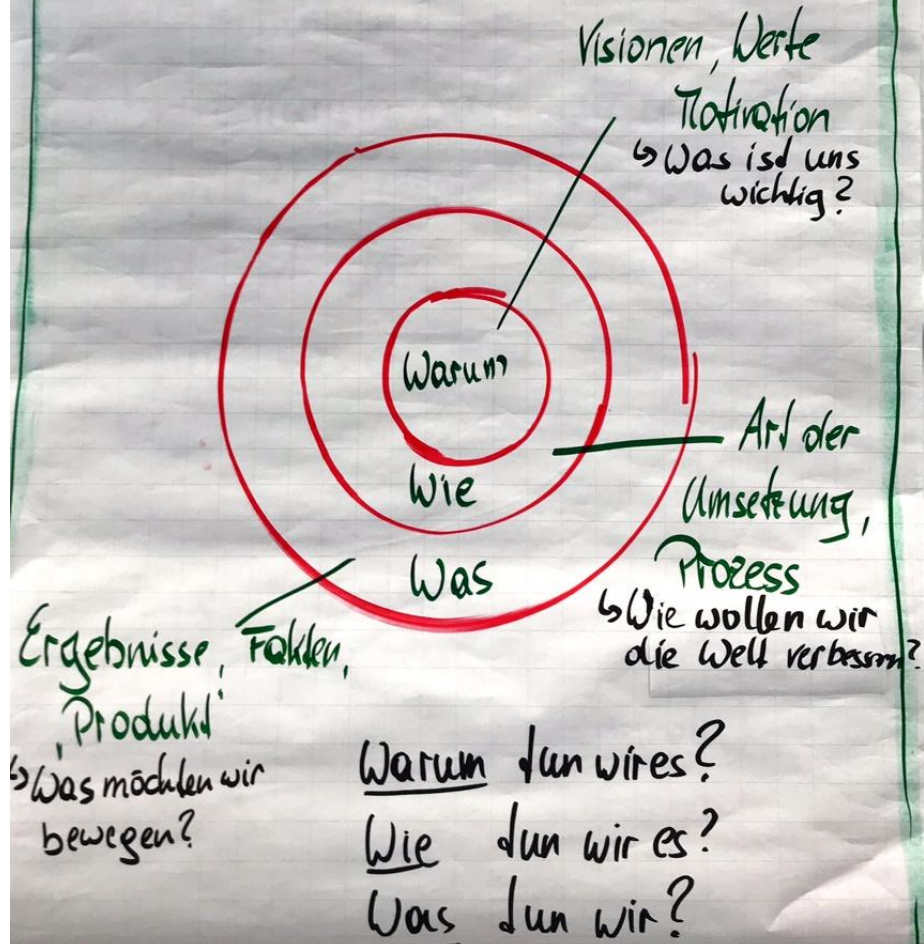 Visionen, Werte
Motivation
↳ Was ist uns
wichtig?
Warum
Wie
Was
Art der
Umsetzung,
Prozess
↳ Wie wollen wir
die Welt verbessern?
Ergebnisse, Fakten,
'Produkt'
↳ Was möchten wir
bewegen?
Warum tun wir es?
Wie tun wir es?
Was tun wir?